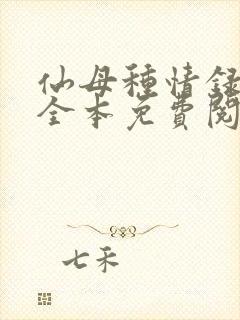 仙母種情録
全本免費閱
七禾